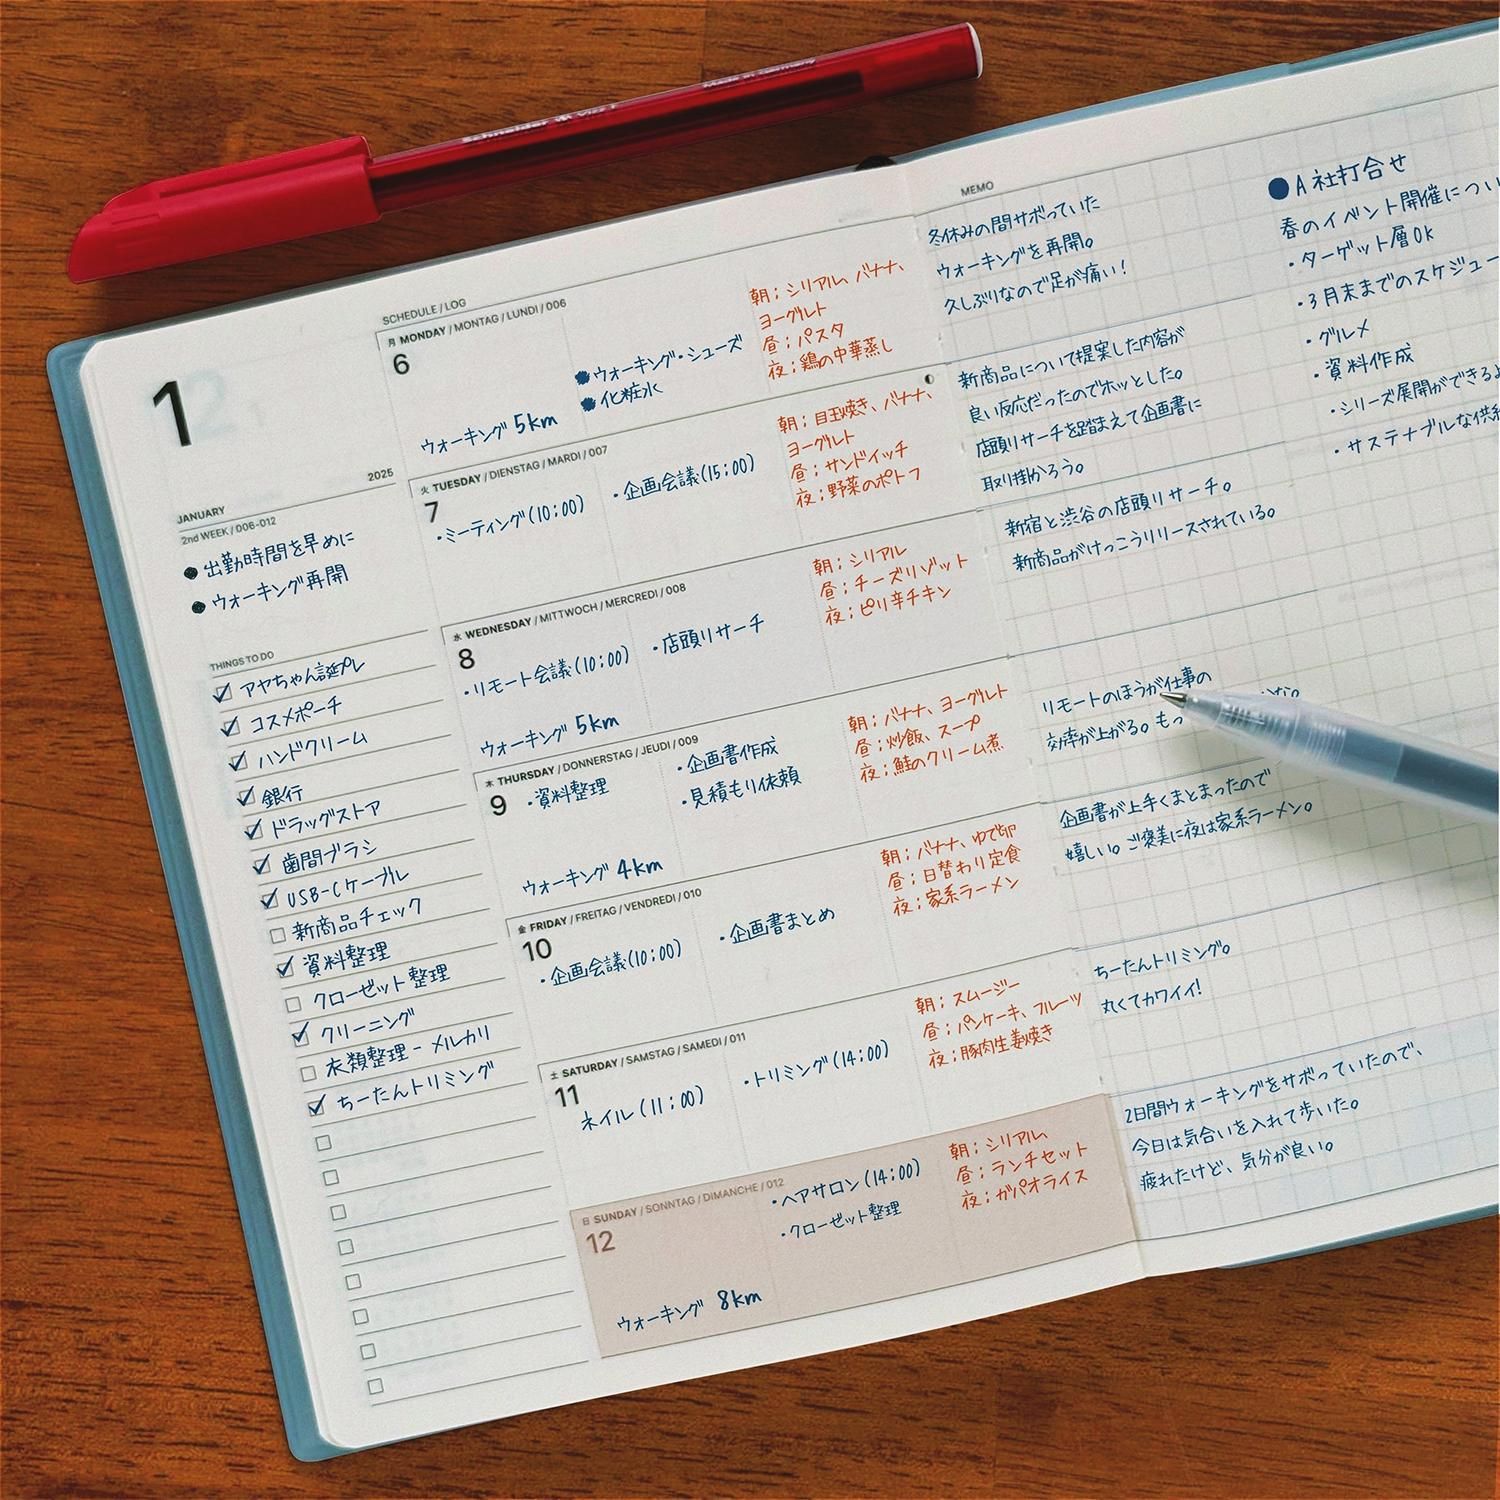 Schneider Vizz F
Made in Germany
1
2025
JANUARY
2nd WEEK / 006-012
●出勤時間を早めに
●ウォーキング再開
THINGS TO DO
アヤちゃん誕プレ
コスメポーチ
ハンドクリーム
銀行
ドラッグストア
歯間ブラシ
USB-Cケーブル
新商品チェック
資料整理
クローゼット整理
クリーニング
衣類整理-メルカリ
ちーたんトリミング
SCHEDULE / LOG
月 MONDAY / MONTAG / LUNDI / 006
6
ウォーキング 5km
●ウォーキング・シューズ
●化粧水
朝;シリアル、バナナ、
ヨーグルト
昼;パスタ
夜;鶏の中華蒸し
火 TUESDAY / DIENSTAG / MARDI / 007
7
・ミーティング(10:00)
・企画会議(15:00)
朝;目玉焼き、バナナ、
ヨーグルト
昼;サンドイッチ
夜;野菜のポトフ
水 WEDNESDAY / MITTWOCH / MERCREDI / 008
8
・リモート会議(10:00)
・店頭リサーチ
ウォーキング 5km
朝;シリアル
昼;チーズリゾット
夜;ピリ辛チキン
木 THURSDAY / DONNERSTAG / JEUDI / 009
9
・資料整理
・企画書作成
・見積もり依頼
ウォーキング 4km
朝;バナナ、ヨーグルト
昼;炒飯、スープ
夜;鮭のクリーム煮
金 FRIDAY / FREITAG / VENDREDI / 010
10
・企画会議(10:00)
・企画書まとめ
朝;バナナ、ゆで卵
昼;日替わり定食
夜;家系ラーメン
土 SATURDAY / SAMSTAG / SAMEDI / 011
11
ネイル(11:00)
・トリミング(14:00)
朝;スムージー
昼;パンケーキ、フルーツ
夜;豚肉生姜焼き
日 SUNDAY / SONNTAG / DIMANCHE / 012
12
・ヘアサロン(14:00)
・クローゼット整理
ウォーキング 8km
朝;シリアル
昼;ランチセット
夜;ガパオライス
MEMO
冬休みの間サボっていた
ウォーキングを再開。
久しぶりなので足が痛い!
新商品について提案した内容が
良い反応だったのでホッとした。
店頭リサーチを踏まえて企画書に
取り掛かろう。
新宿と渋谷の店頭リサーチ。
新商品がけっこうリリースされている。
リモートのほうが仕事の
効率が上がる。もっ
企画書が上手くまとまったので
嬉しい。ご褒美に夜は家系ラーメン。
ちーたんトリミング。
丸くてカワイイ!
2日間ウォーキングをサボっていたので、
今日は気合いを入れて歩いた。
疲れたけど、気分が良い。
●A社打合せ
春のイベント開催につい
・ターゲット層OK
・3月末までのスケジュー
・グルメ
・資料作成
・シリーズ展開ができるよ
・サステナブルな供給